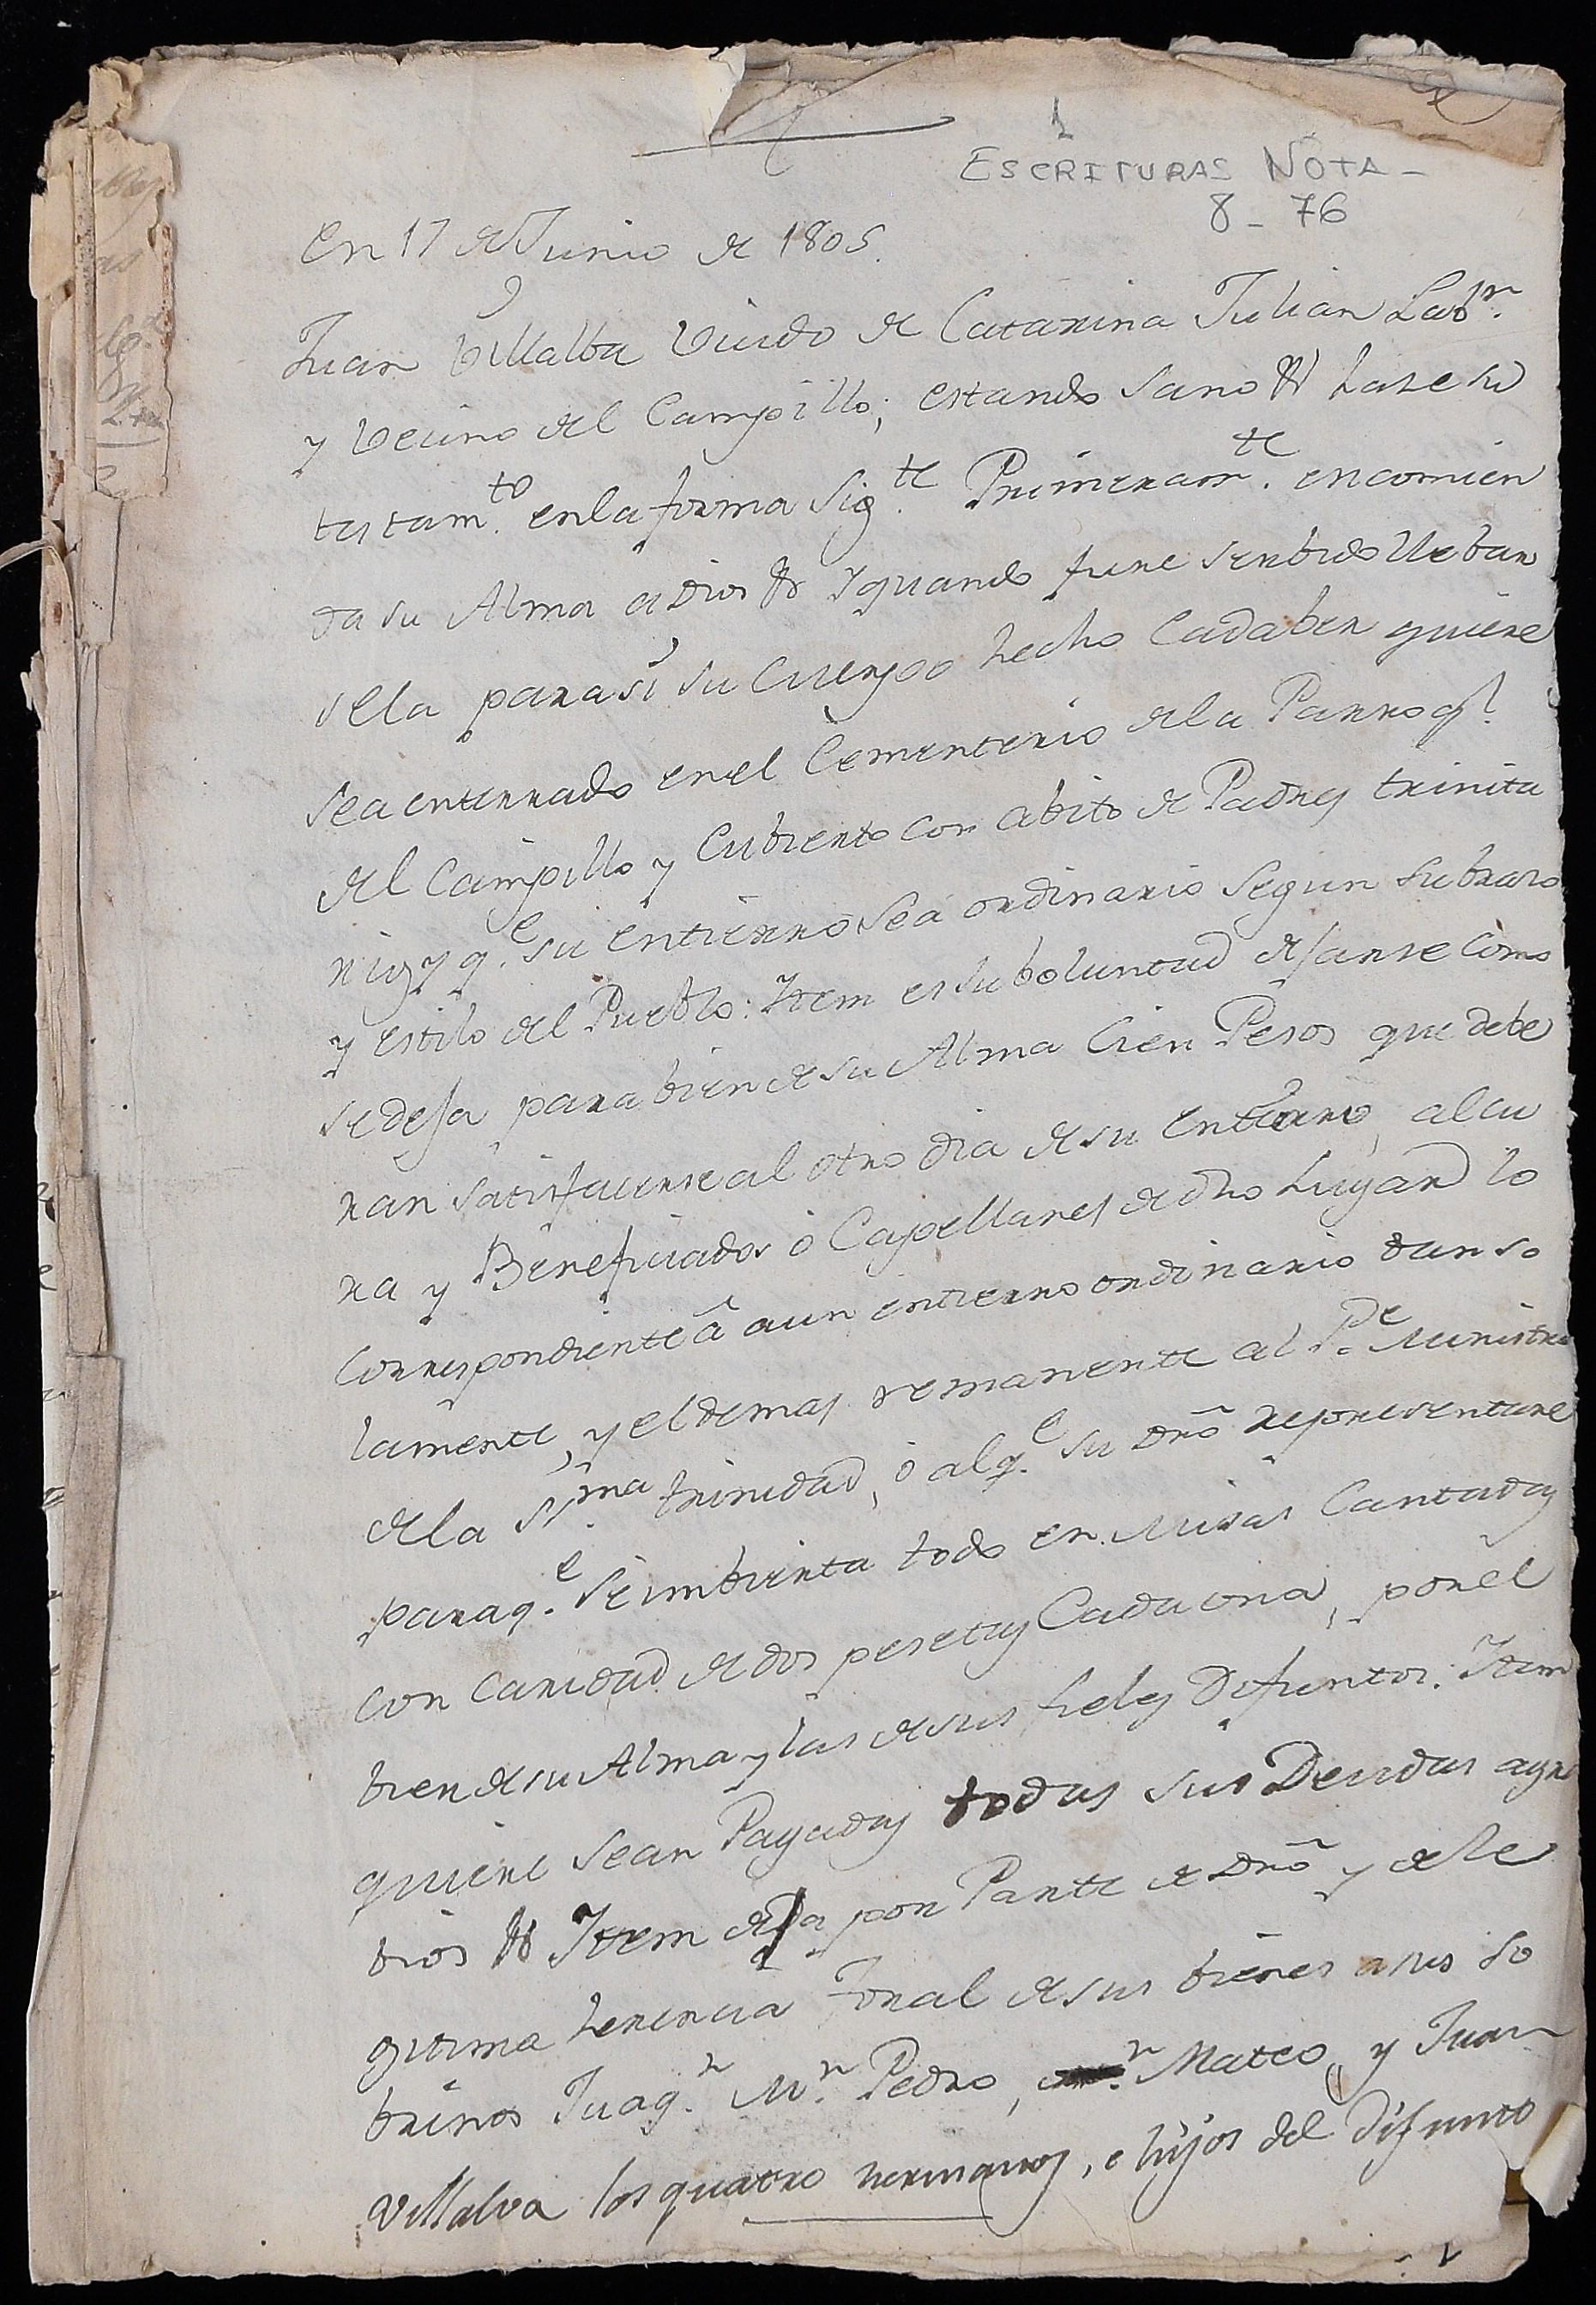 1
ESCRITURAS NOTA-
8-76
En 17 de Junio de 1805.
Juan Villalba Viudo de Catarina Julian Labr.
y Vecino del Campillo; estando sano &c hase su
testamto. en la forma sigte. Primeramte. encomien
da su Alma a Dios &c y quando fuere serbido llebar
sela para si su Cuerpo hecho Cadaber quiere
sea enterrado en el Cementerio de la Parroql.
del Campillo y Cubierto con abito de Padres trinita
rios y qe. su entierro sea ordinario segun su braso
y estilo del Pueblo: Item es su boluntad dejarse como
se deja para bien de su Alma Cien Pesos que debe
ran satisfacerse al otro dia de su entierro, al cu
ra y Beneficiados ó Capellanes de dho Lugar lo
correspondiente á a un entierro ordinario tan so
lamente, y el demas remanente al Pe. Ministro
de la Sma. trinidad, ó al qe. su dro representare
para qe. se imbierta todo en Misas Cantadas
con caridad de dos pesetas Cada una, por el
bien de su Alma y las de sus fieles Difuntos: Item
quiere sean Pagadas todas sus Deudas agra
bios &c Item deja por Parte de dro y de le
gitima herencia foral de sus bienes a sus so
brinos Juaqn. Mn. Pedro, Mateo, y Juan
Villalva los quatro hermanos, e hijos del difunto